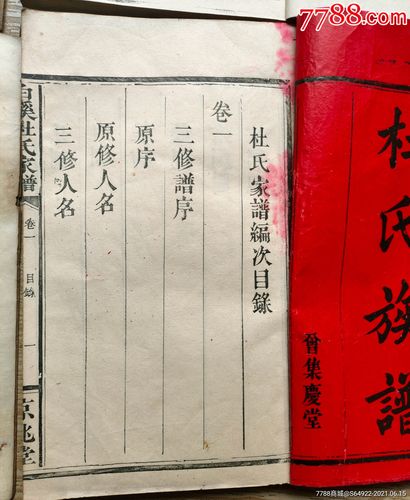 7788.com
杜氏族譜
曾集慶堂
杜氏家譜編次目錄
卷一
三修譜序
原序
原修人名
三修人名
白溪杜氏家譜
卷一
目錄
一
京兆堂
7788商城@S64922-2021.06.15